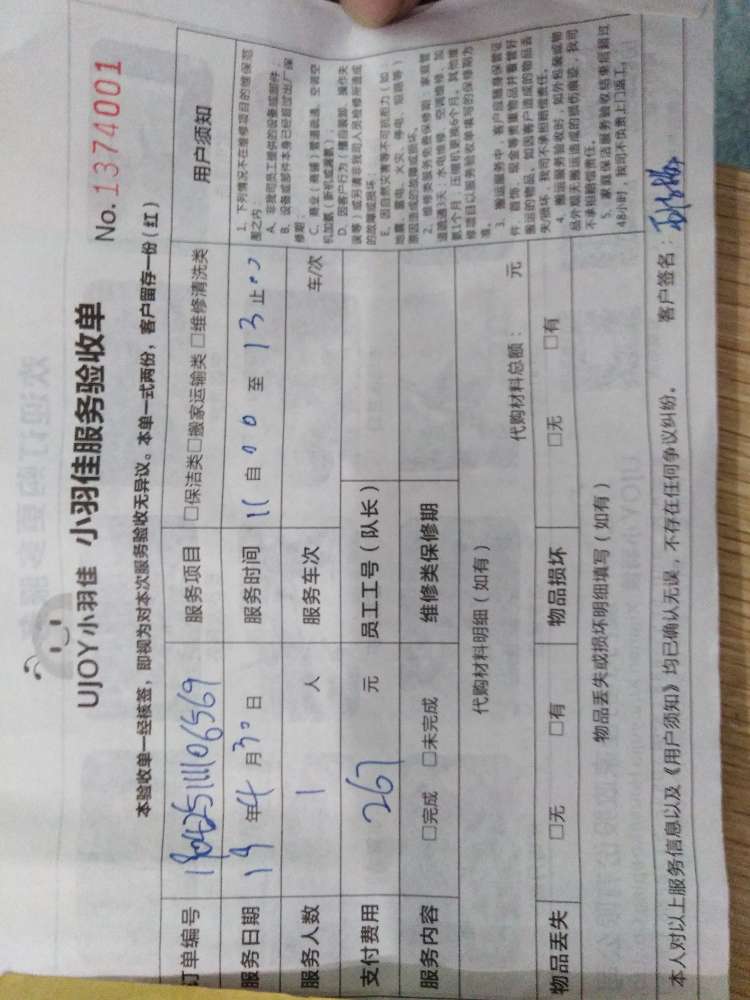 UJOY小羽佳 小羽佳服务验收单
No. 1374001
本验收单一经核签，即视为对本次服务验收无异议。本单一式两份，客户留存一份（红）
订单编号 190425111106569 服务项目 □保洁类□搬家运输类 □维修清洗类 用户须知
服务日期 19 年 4 月 30 日 服务时间 11 自 00 至 13 止 00
服务人数 1 人 服务车次 车/次
支付费用 267 元 员工工号（队长）
服务内容 □完成 □未完成 维修类保修期
代购材料明细（如有）
代购材料总额： 元
物品丢失 □无 □有 物品损坏 □无 □有
物品丢失或损坏明细填写（如有）
1、下列情况不在维修项目的维保范
围之内：
A、非我司员工提供的设备或部件；
B、设备或部件本身已经超过出厂保
修期；
C、商业（商铺）管道疏通、空调空
机加氟（新机或漏氟）；
D、因客户行为（擅自装卸、操作失
误等）或另请非我司人员检修所造成
的故障或损坏；
E、因自然灾害等不可抗拒力（如：
地震、雷电、火灾、停电、短路等）
原因造成的故障或损坏。
2、维修类服务免费保修期：家庭管
道疏通3天；水电维修、空调维修、加
氟1个月；压缩机更换6个月。其他维
修项目以服务验收单填写的保修期为
准。
3、搬运服务中，客户应随身保管证
件、首饰、现金等贵重物品并看管好
搬运的物品，如因客户造成的物品丢
失/损坏，我司不承担赔偿责任。
4、搬运服务验收时，如外包装或物
品外观无搬运造成的损伤痕迹，我司
不承担赔偿责任。
5、家庭保洁服务验收结束后超过
48小时，我司不负责上门返工。
本人对以上服务信息以及《用户须知》均已确认无误，不存在任何争议纠纷。 客户签名：